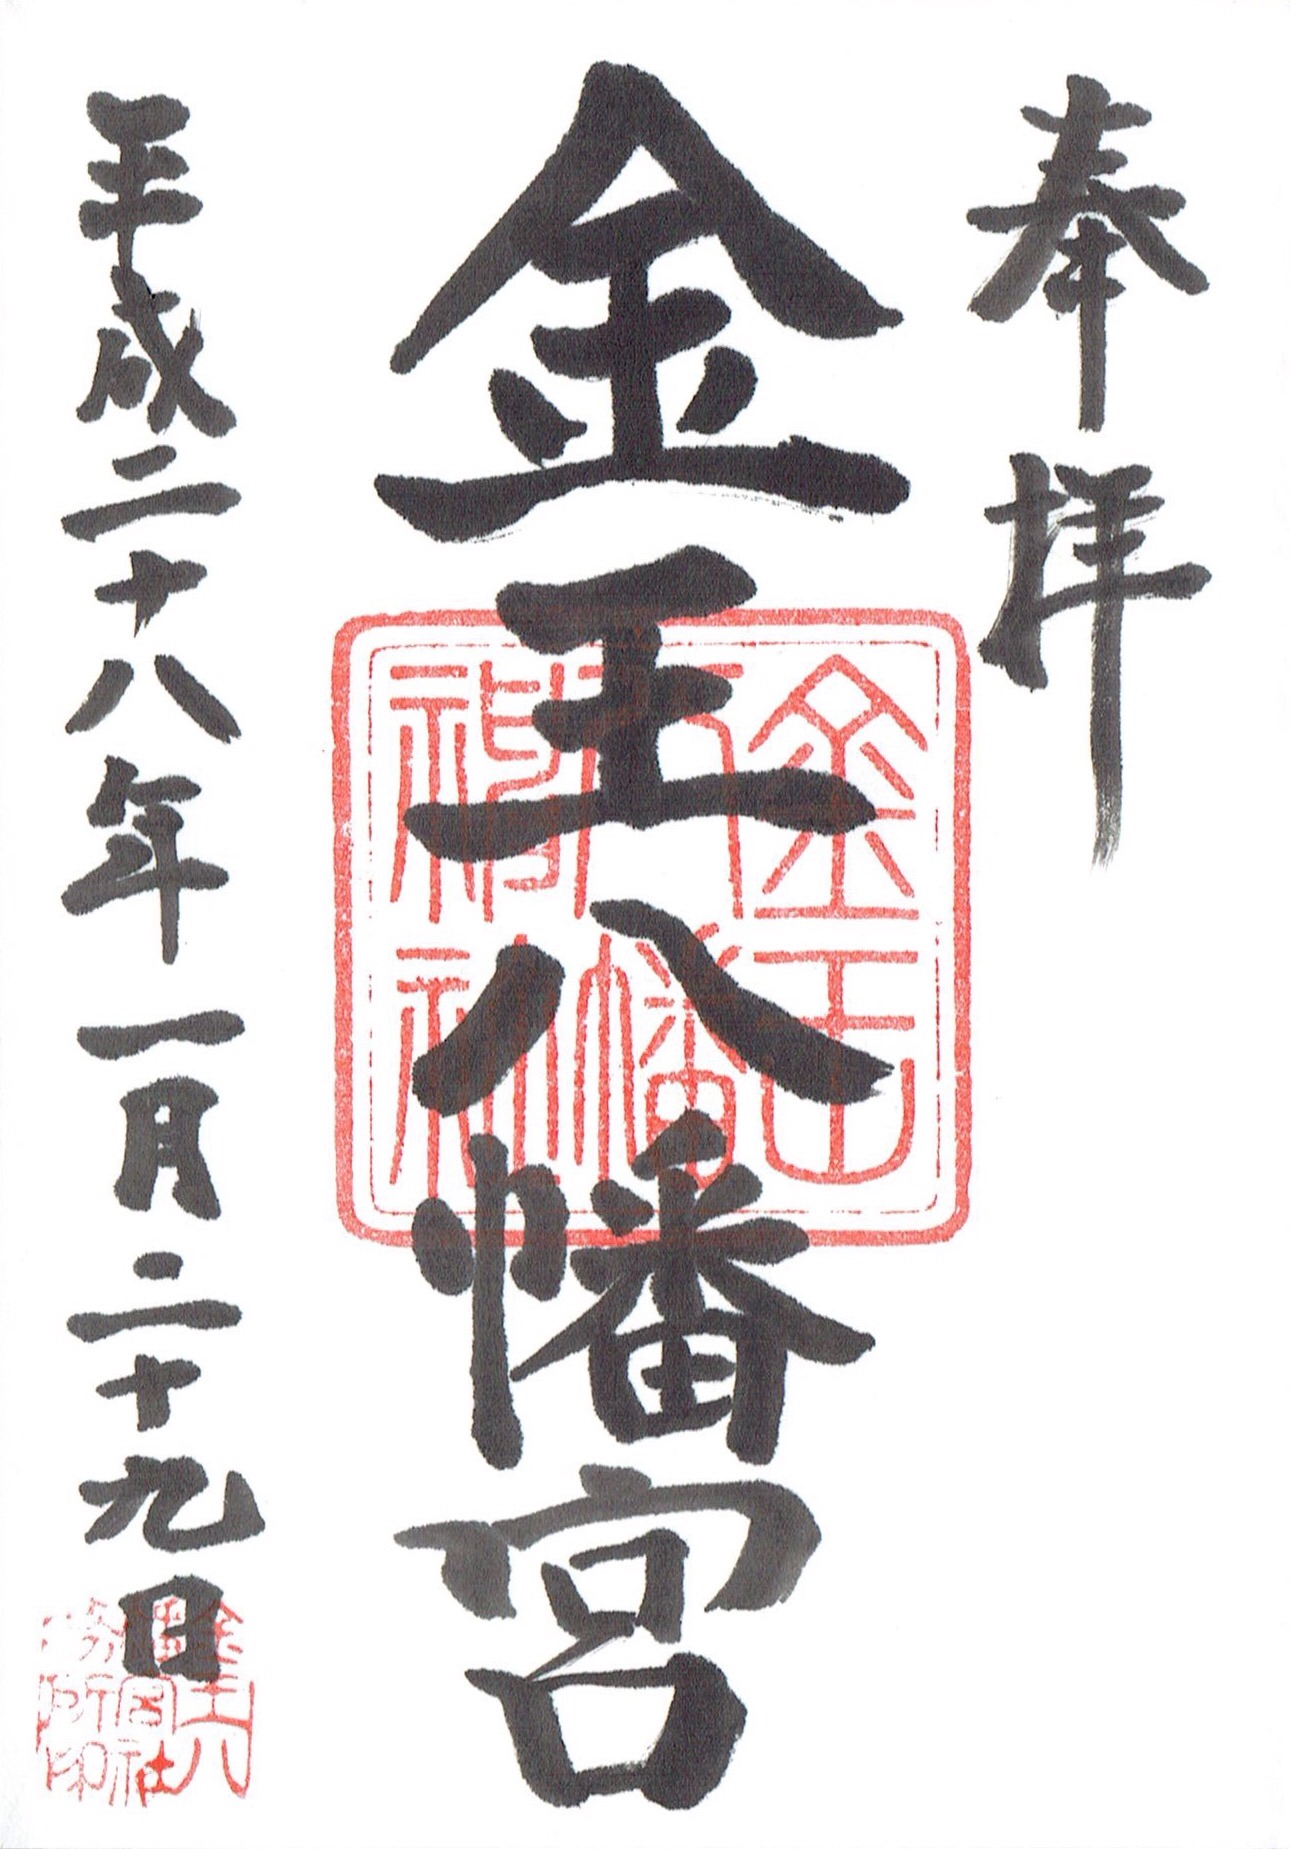 奉拝
金王八幡宮
平成二十八年一月二十九日
金王
八幡
神社
金王八
幡宮社
務所印